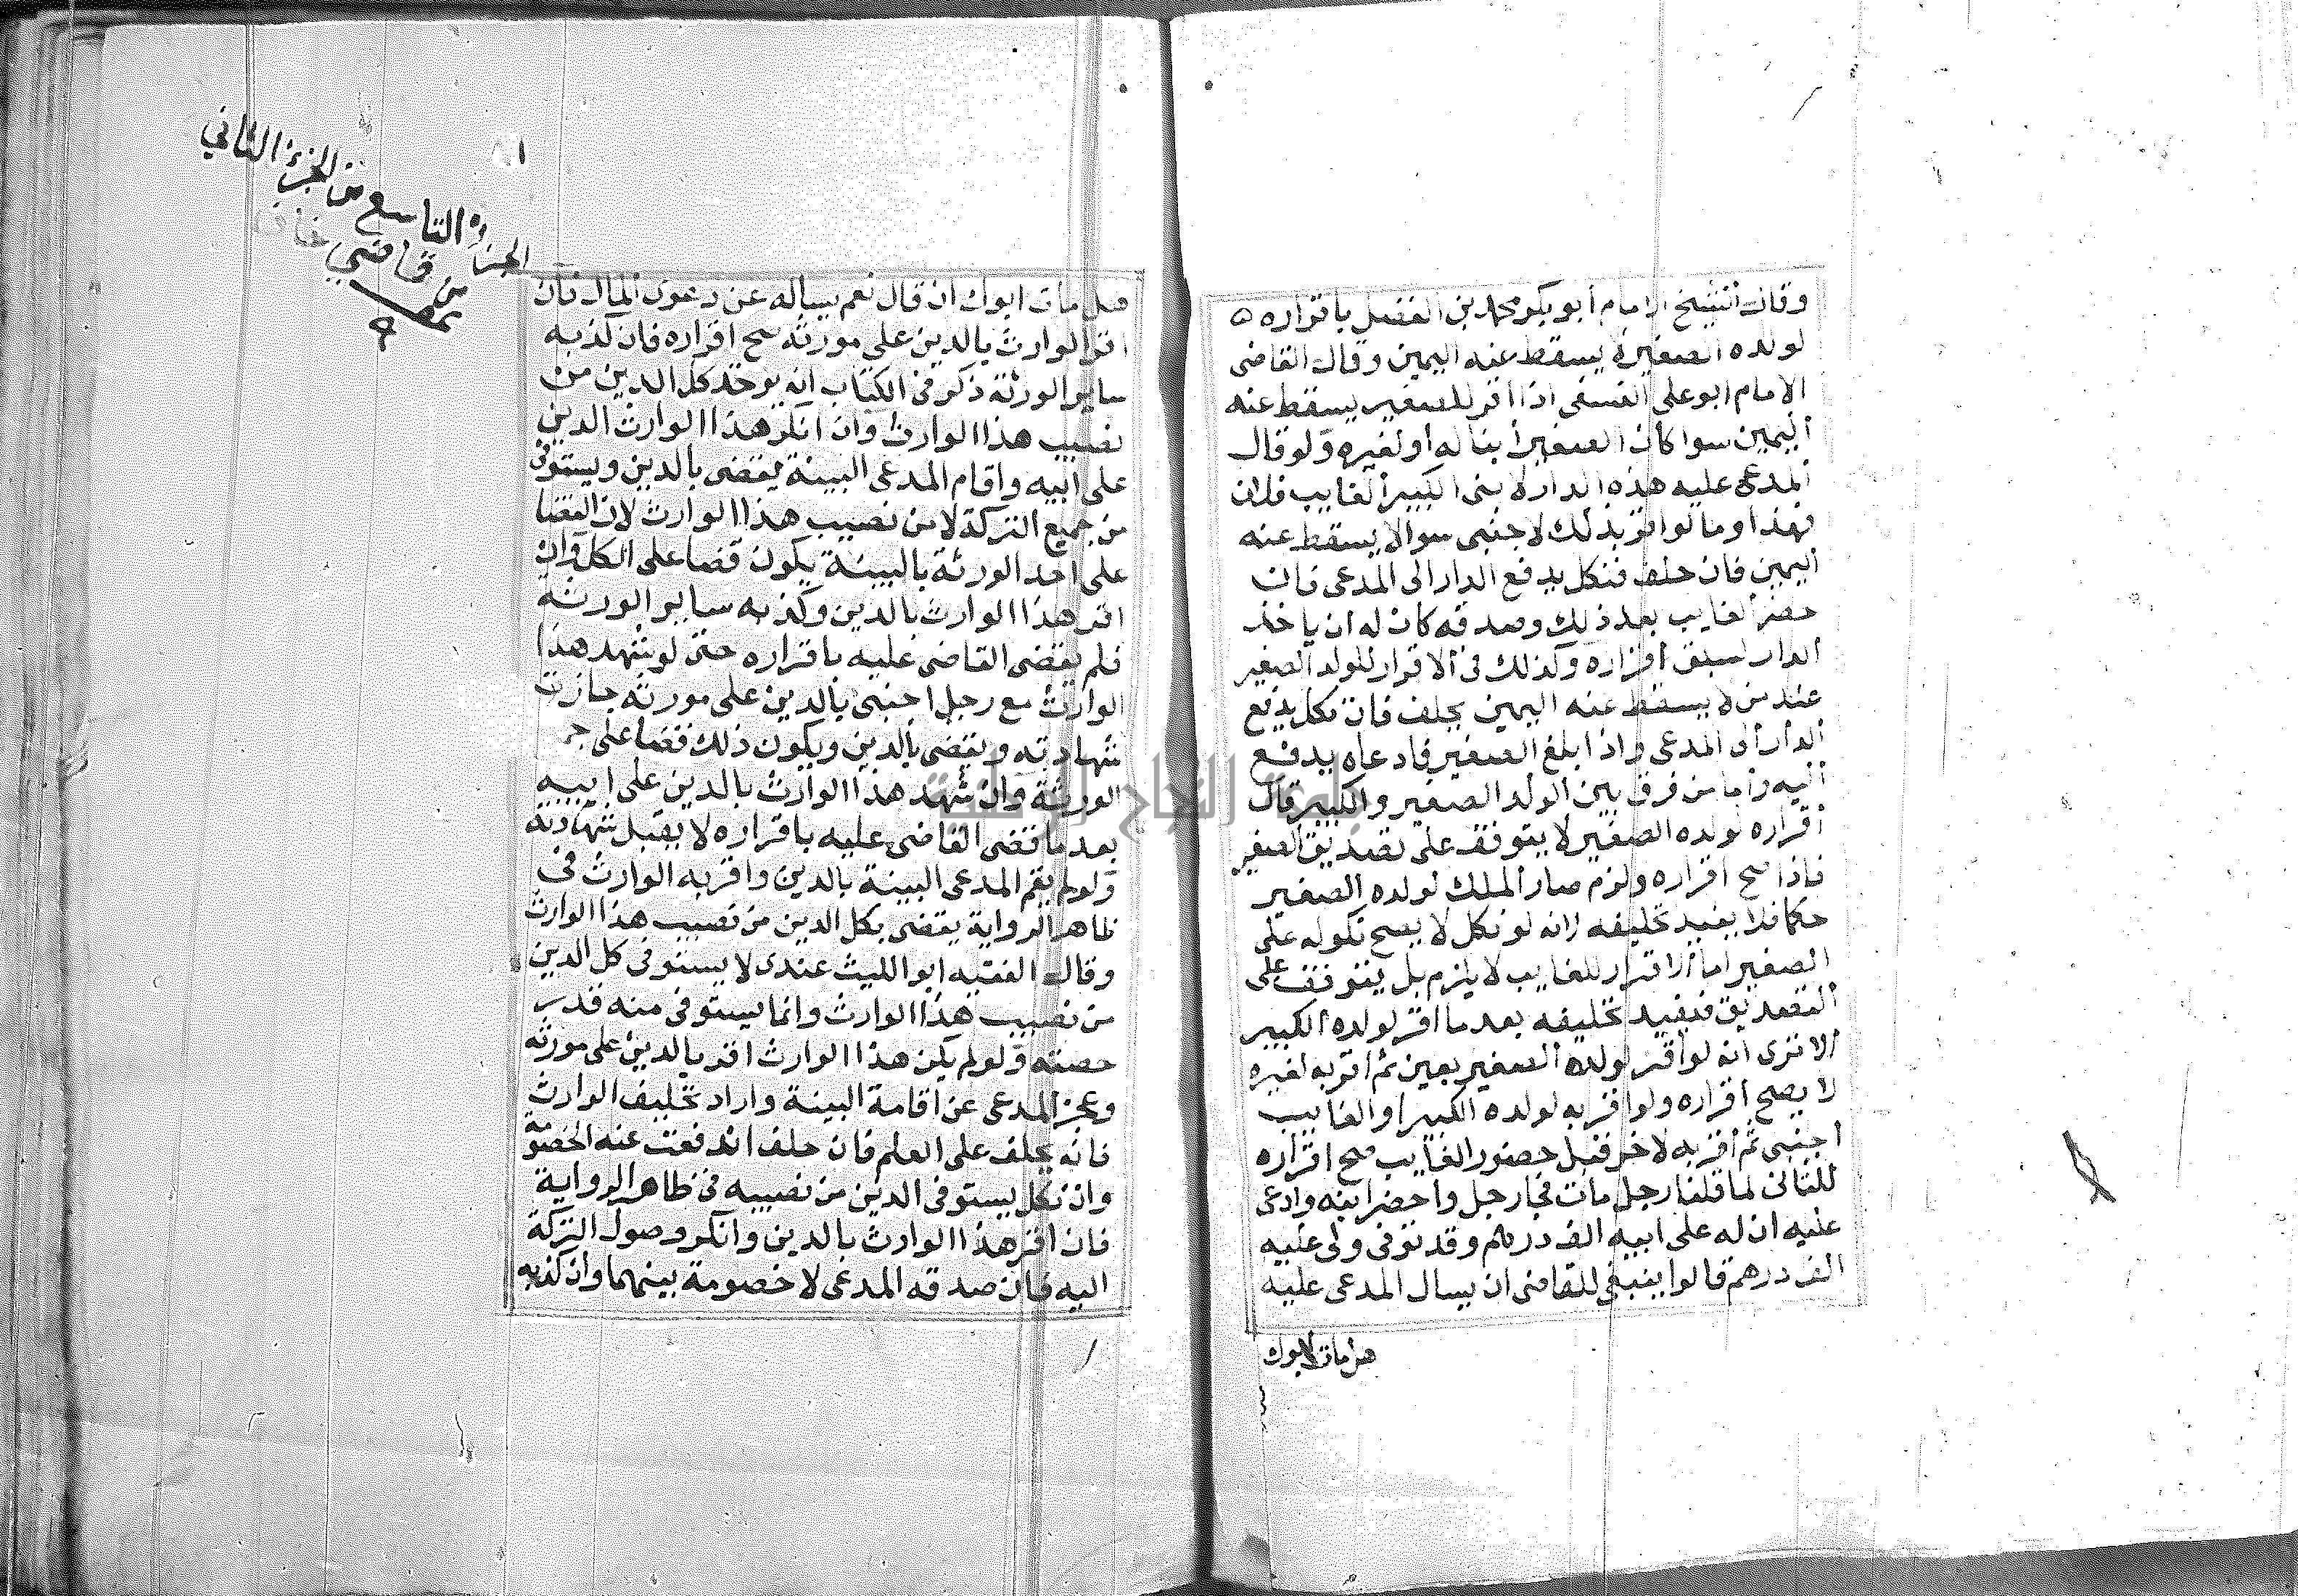 وقال الشيخ الامام أبو بكر محمد بن الفضل باقراره ه
لولده الصغير لا يسقط عنه اليمين وقال القاضى
الامام ابو على النسفى اذا اقر للصغير يسقط عنه
اليمين سوا كان الصغير أبنا له أو لغيره ولو قال
المدعى عليه هذه الدار لابنى الكبير الغايب فلان
فهذا وما لو اقر بذلك لاجنبى سوا لا يسقط عنه
اليمين فان حلف فنكل يدفع الدار الى المدعى فان
حضر الغايب بعد ذلك وصدقه كان له ان ياخذ
الدار لسبق أقراره وكذلك فى الاقرار للولد الصغير
عند من لا يسقط عنه اليمين يحلف فان نكل يدفع
الدار الى المدعى واذا بلغ الصغير فادعاه يدفع
اليه وأما من فرق بين الولد الصغير والكبير قال
أقراره لولده الصغير لا يتوقف على تصديق الصغير
فاذا صح اقراره ولزم صار الملك لولده الصغير
حكما فلا يفيد تحليفه لانه لو نكل لا يصح نكوله على
الصغير اما الاقرار للغايب لا يلزم بل يتوقف على
التصديق فيفيد تحليفه بعد ما اقر لولده الكبير
الا ترى انه لو اقر لولده الصغير بعين ثم اقر به لغيره
لا يصح أقراره ولو اقر به لولده الكبير او الغايب
أجنبى ثم أقر به لاخر قبل حضور الغايب صح اقراره
للثانى لما قلنا رجل مات فجا رجل وأحضر ابنه وادعى
عليه ان له على ابيه الف درهم وقد توفى ولى عليه
الف درهم قالوا ينبغى للقاضى ان يسال المدعى عليه
هل مات ابوك
الجزء التاسع من الجزء الثانى
من قاضي خان
هل مات ابوك ان قال نعم يساله عن دعوى المال فان
اقر الوارث بالدين على مورثه صح اقراره فان كذبه
ساير الورثة ذكر فى الكتاب انه يوخذ كل الدين من
نصيب هذا الوارث وان انكر هذا الوارث الدين
على ابيه واقام المدعى البينة يقضى بالدين ويستوفى
من جميع التركة لا من نصيب هذا الوارث لان القضا
على احد الورثة بالبينة يكون قضا على الكل وان
اقر هذا الوارث بالدين وكذبه ساير الورثة
فلم يقضى القاضى عليه باقراره حتى لو شهد هذا
الوارث مع رجل اجنبى بالدين على مورثه جازت
شهادته ويقضى بالدين ويكون ذلك قضا على
الورثة وان شهد هذا الوارث بالدين على ابيه
بعد ما قضى القاضى عليه باقراره لا يقبل شهادته
ولو لم يقم المدعى البينة بالدين واقر به الوارث فى
ظاهر الرواية يقضى بكل الدين من نصيب هذا الوارث
وقال الفقيه ابو الليث عندى لا يستوفى كل الدين
من نصيب هذا الوارث وانما يستوفى منه قدر
حصته ولو لم يكن هذا الوارث اقر بالدين على مورثه
وعجز المدعى عن اقامة البينة واراد تحليف الوارث
فانه يحلف على العلم فان حلف اندفعت عنه الخصومة
وان نكل يستوفى الدين من نصيبه فى ظاهر الرواية
فان اقر هذا الوارث بالدين وانكر وصول التركة
اليه فان صدقه المدعى لا خصومة بينهما وأن كذبه
جامعة النجاح الوطنية